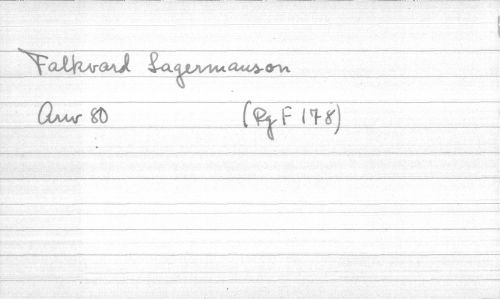 Falkvard Lagermanson
Anv 80 (Rg F 178)